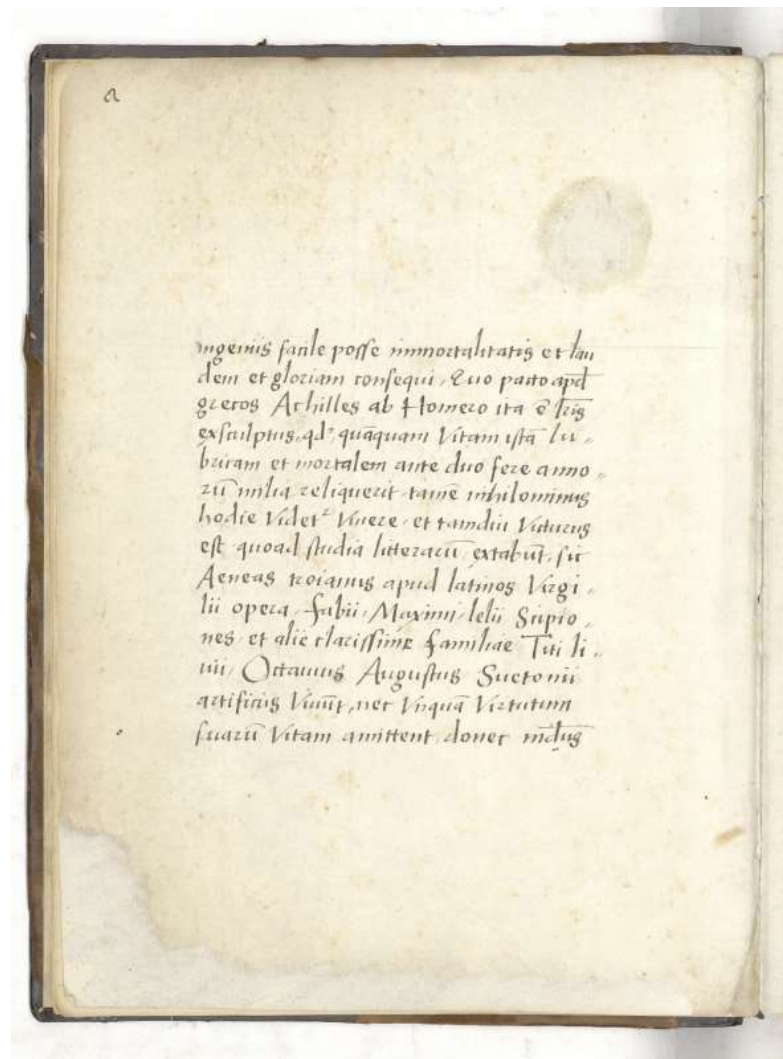 a
ingeniis facile posse immortalitatis et lau
dem et gloriam consequi, Quo pacto apd̄
grecos Achilles ab Homero ita ē lr̄is
exsculptus, qd², quāquam Vitam istā lu„
bricam et mortalem ante duo fere anno„
rū milia reliquerit tamē nihilominus
hodie Videt² Vivere, et tamdiu Victurus
est quoad studia litterarū extabūt, sic
Aeneas troianus apud latinos Virgi„
lii opera, fabii, Maximi, lelii Scipio„
nes et alie clarissime familiae Titi li„
uii, Octauius Augustus Suetonii
artificiis Viuūt, nec Vnquā Virtutum
suarū Vitam amittent, donec mūdus